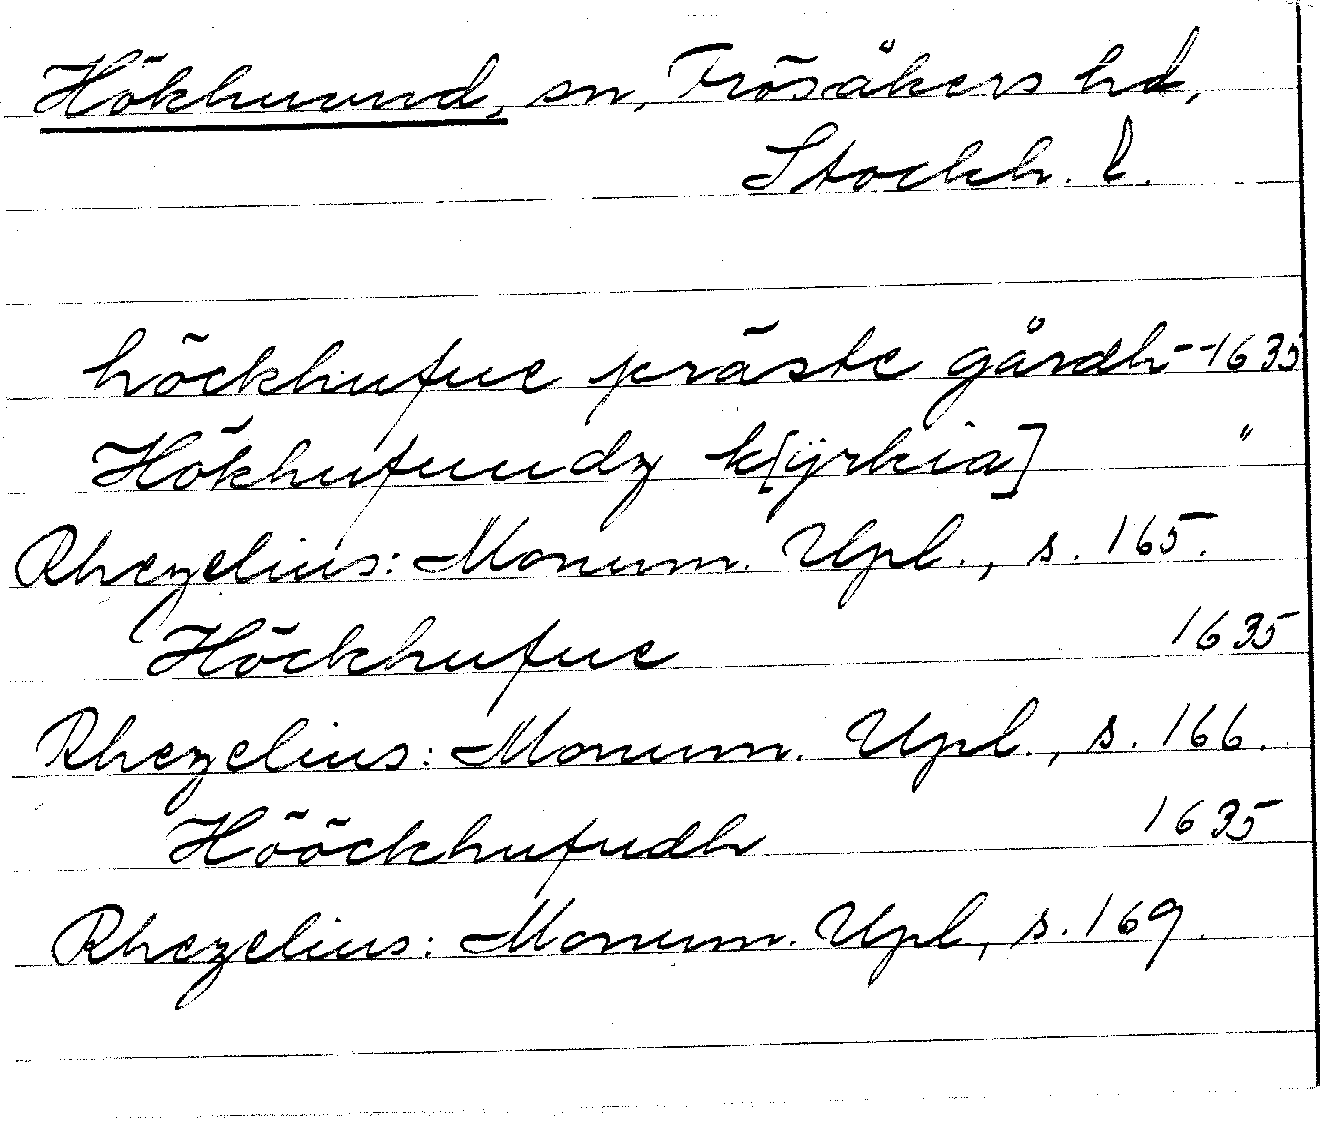 Hökhuvud, sn, Frösåkers hd,
Stockh. l.
höckhufue präste gårdh - -1635
Hökhufuudz k[ÿrkia] "
Rhezelius: Monum. Upl., s. 165.
Höckhufue 1635
Rhezelius: Monum. Upl., s. 166.
Hööckhufudh 1635
Rhezelius: Monum. Upl, s. 169.